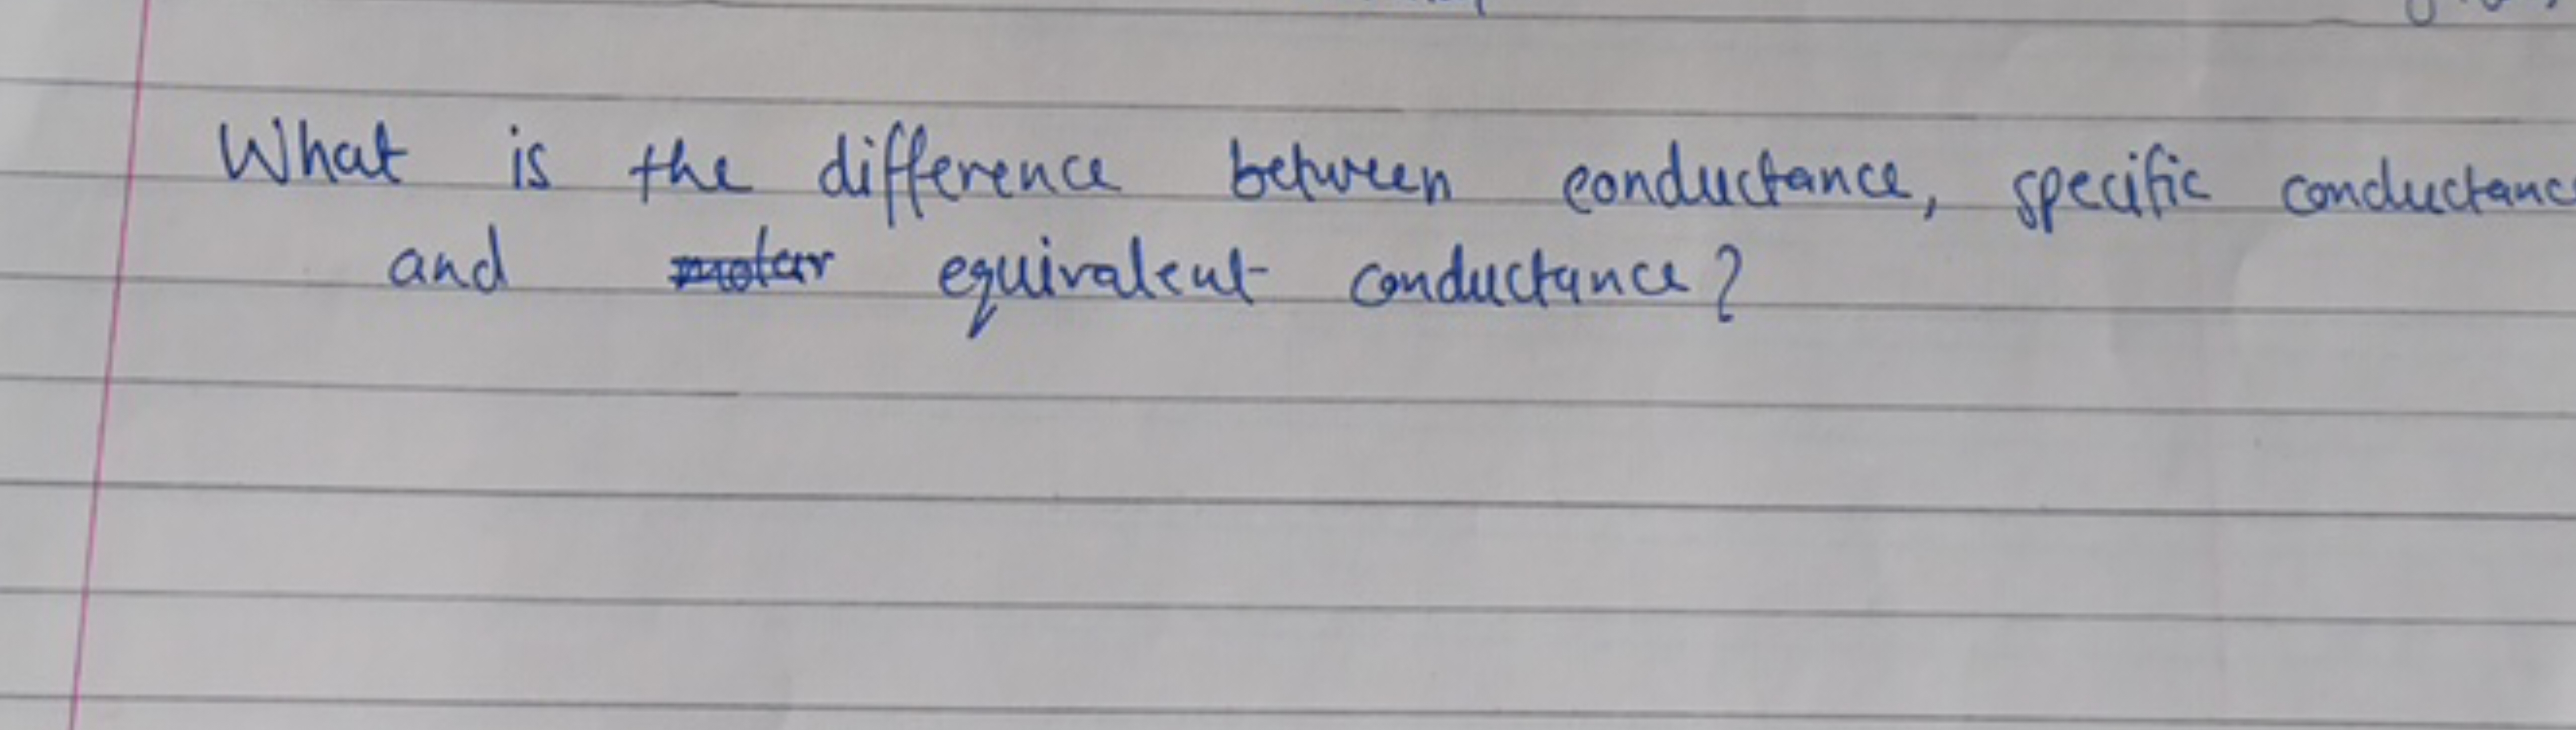 What is the difference between conductance, specific conductanc
and equivalent conductance?